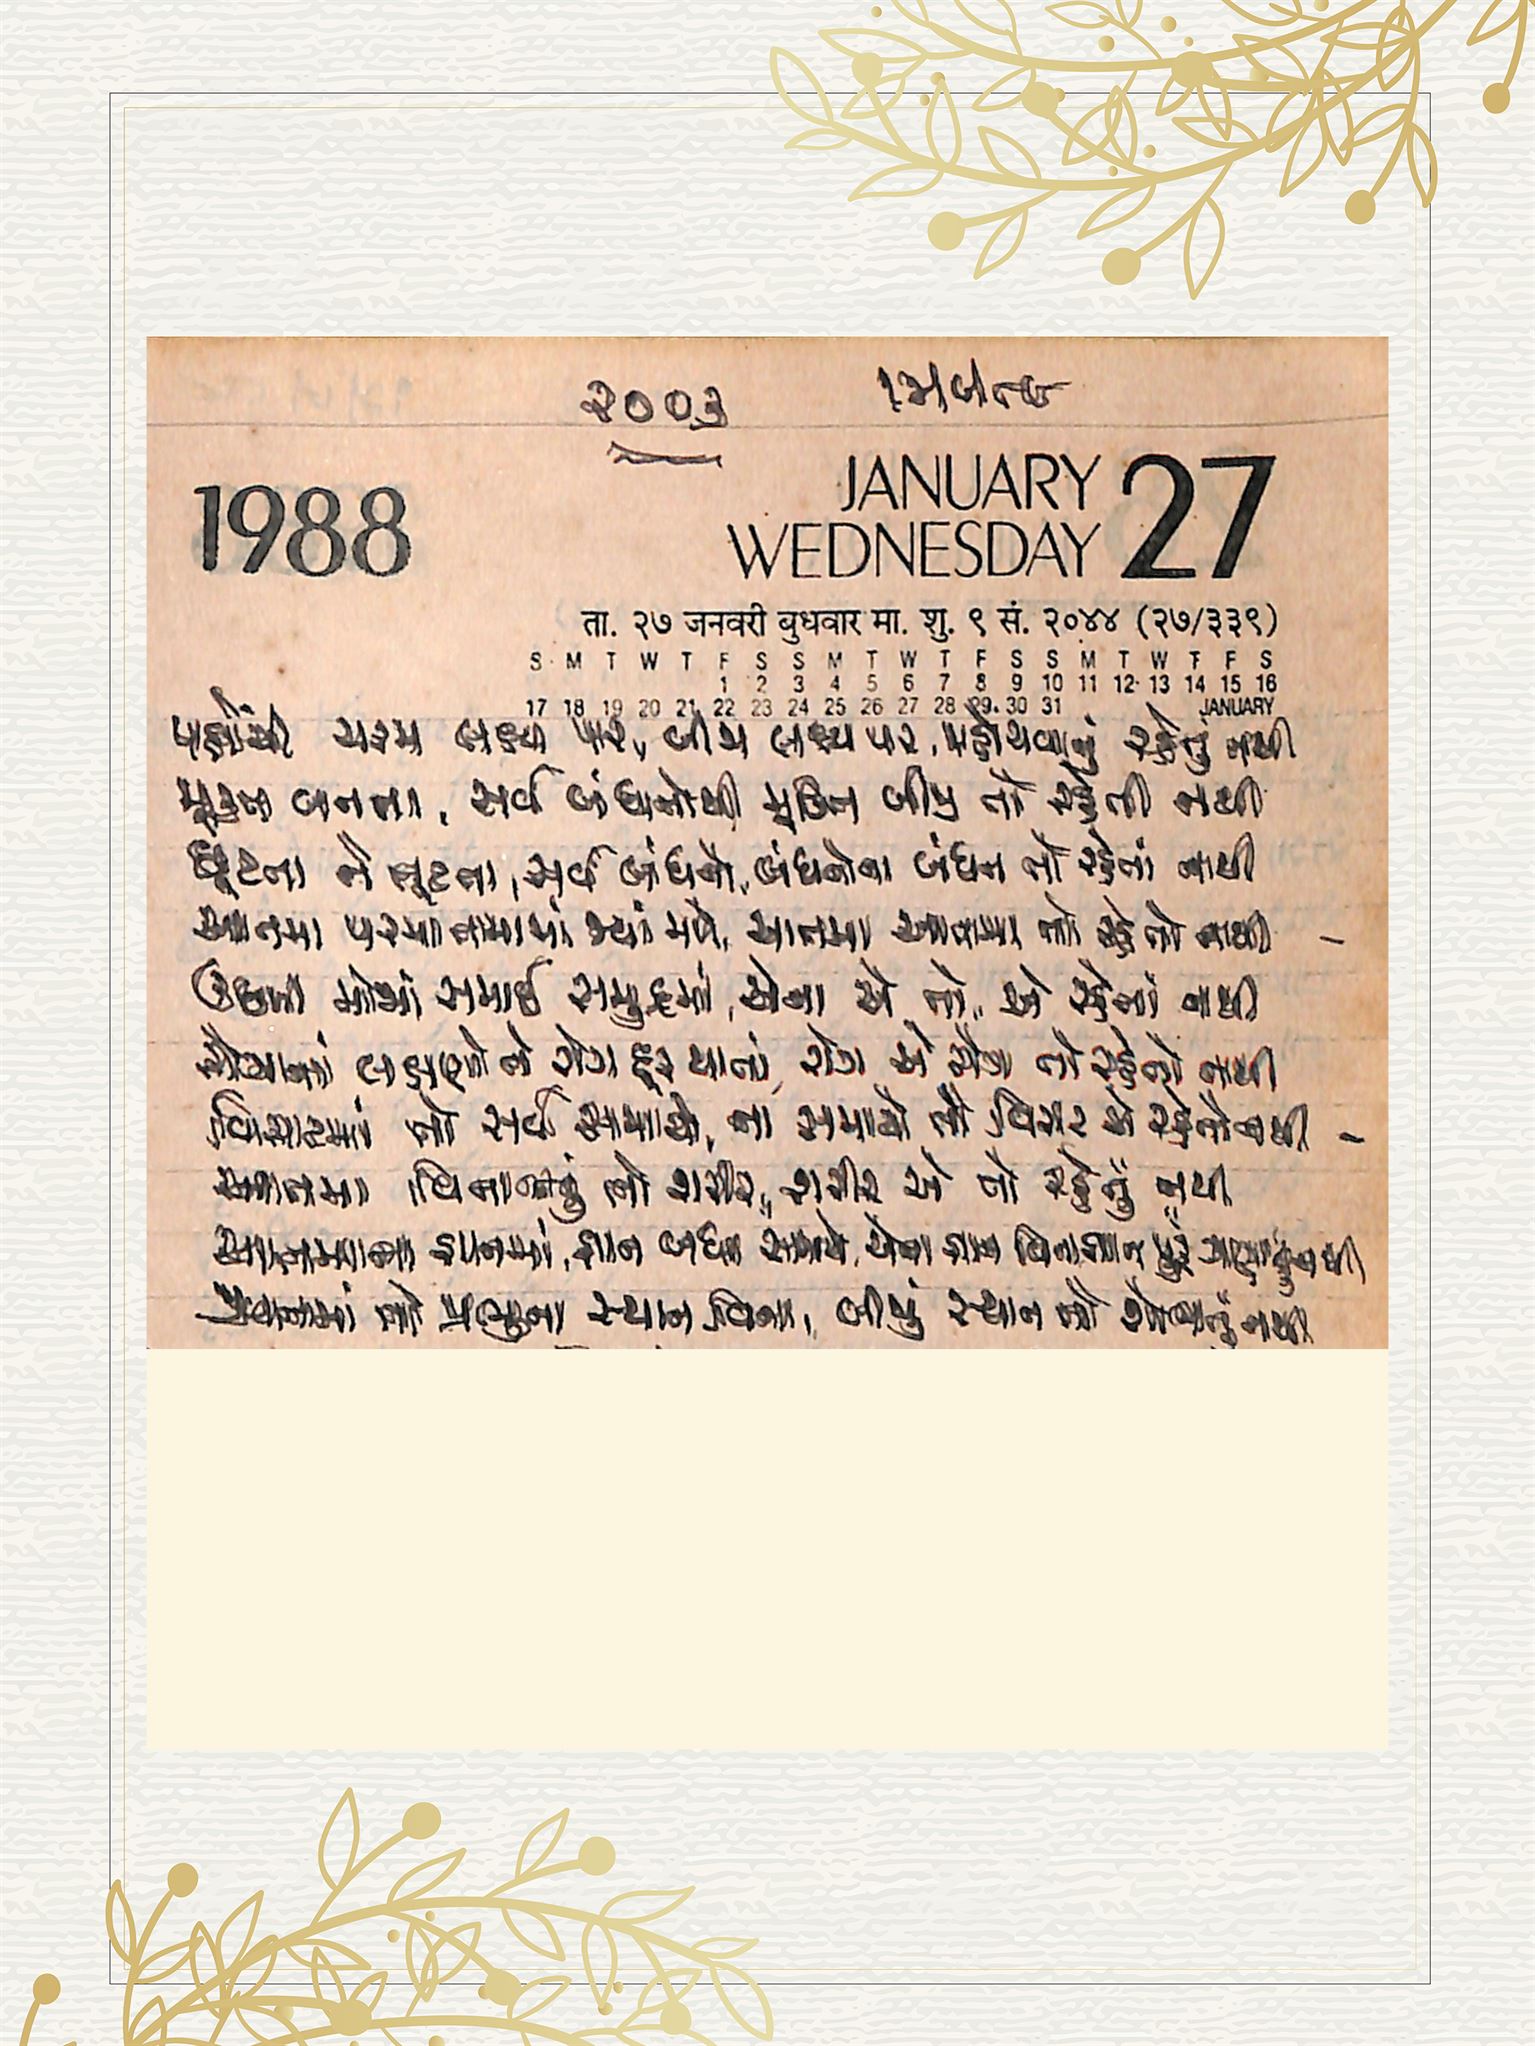 ૨૦૦૩
1988
JANUARY 27
WEDNESDAY
ता. २७ जनवरी बुधवार मा. शु. ९ सं. २०४४ (२७/३३९)
S M T W T F S S M T W T F S S M T W T F S
1 2 3 4 5 6 7 8 9 10 11 12 13 14 15 16
17 18 19 20 21 22 23 24 25 26 27 28 29 30 31 JANUARY
પહોંચી ચરમ લક્ષ્ય પર, બીજા લક્ષ્ય પર, પહોંચવાનું રહેતું નથી
મુક્ત બનતા, સર્વ બંધનોથી મુક્તિ બીજી તો રહેતી નથી
છૂટતા ને તૂટતા, સર્વ બંધનો, બંધનોના બંધન તો રહેતાં નથી
આતમા પરમાતમામાં જ્યાં મળે, આતમા આતમા તો રહેતો નથી
ઉછળી મોજાં સમાઈ સમુદ્રમાં, એના એ તો, એ રહેતાં નથી
લક્ષણો ને રોગ દૂર થાતાં, રોગ એ રોગ તો રહેતો નથી
વિરાટમાં તો સર્વ સમાયે, ના સમાયે તો વિરાટ એ રહેતો નથી
આતમા વિનાનું તો શરીર, શરીર એ તો રહેતું નથી
આતમાના જ્ઞાનમાં, જ્ઞાન બધા સમાયે, એના જ્ઞાન વિના જ્ઞાન પૂરું ગણાતું નથી
તો પ્રભુના સ્થાન વિના, બીજું સ્થાન તો શોભતું નથી